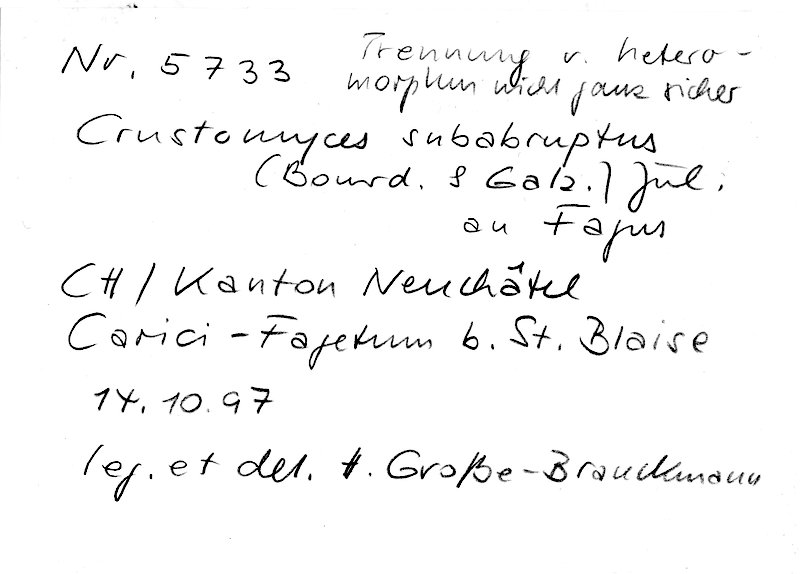 Nr. 5733
Trennung v. hetero-
morphum nicht ganz sicher
Crustomyces subabruptus
(Bourd. & Galz.) Jül.
an Fagus
CH / Kanton Neuchâtel
Carici-Fagetum b. St. Blaise
14.10.97
leg. et det. H. Große-Brauckmann